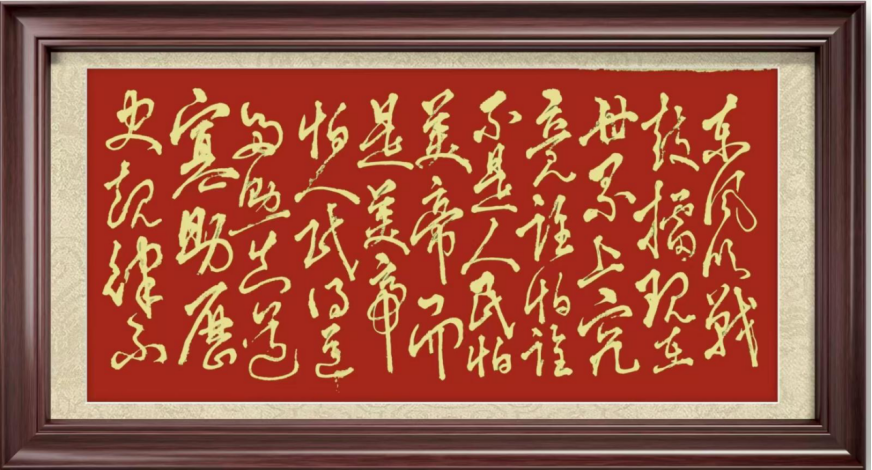 东风吹戰
鼓擂现在
世界上究
竟谁怕谁
不是人民怕
美帝而
是美帝
怕人民得道
多助失道
寡助歷
史规律不